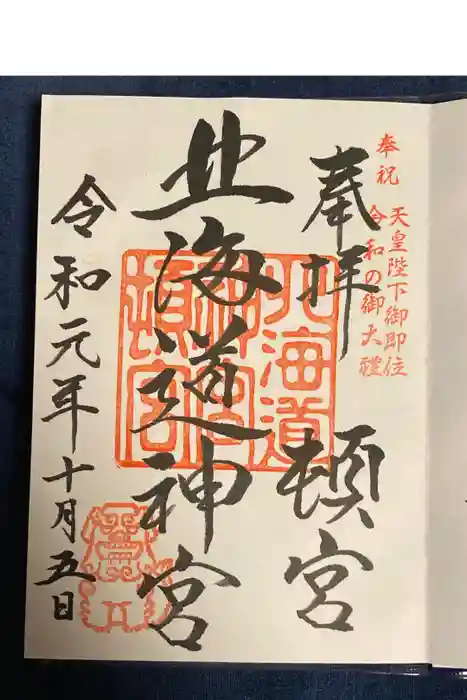 奉祝
天皇陛下御即位
令和の御大禮
奉拝
頓宮
北海道神宮
北海道
神宮
頓宮
令和元年十月五日